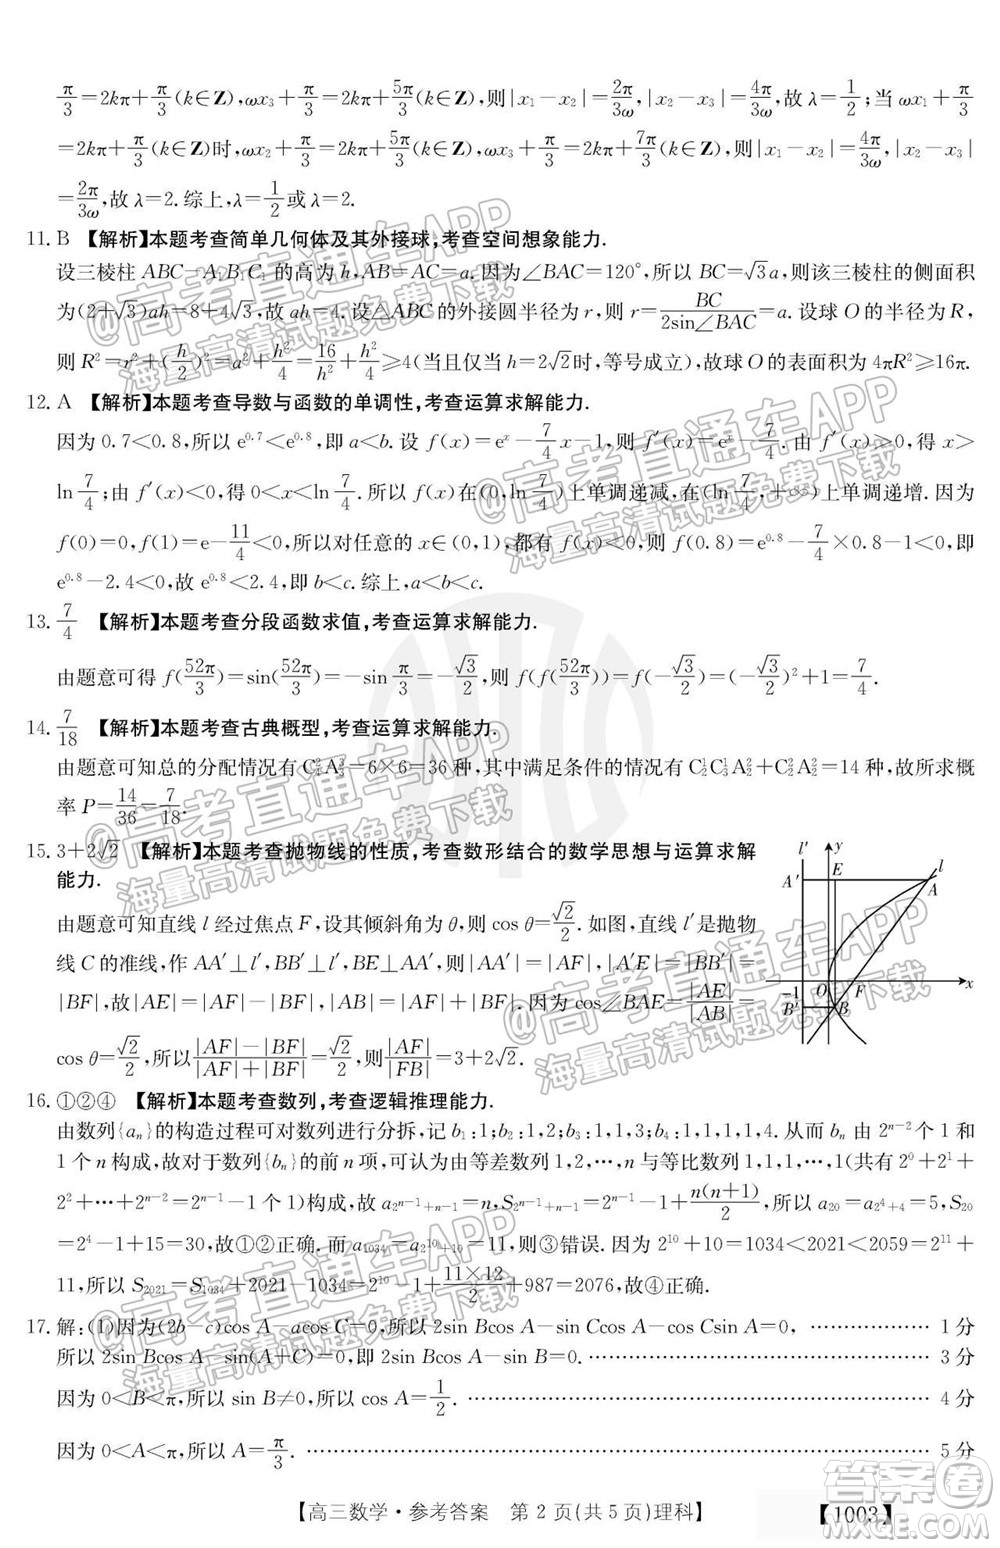 π/3=2kπ+π/3(k∈Z),ωx₃+π/3=2kπ+5π/3(k∈Z),则|x₁-x₂|=2π/3ω,|x₂-x₃|=4π/3ω,故λ=1/2;当ωx₁+π/3
=2kπ+π/3(k∈Z)时,ωx₂+π/3=2kπ+5π/3(k∈Z),ωx₃+π/3=2kπ+7π/3(k∈Z),则|x₁-x₂|=4π/3ω,|x₂-x₃|
=2π/3ω,故λ=2.综上,λ=1/2或λ=2.
11. B 【解析】本题考查简单几何体及其外接球,考查空间想象能力.
设三棱柱ABC-A₁B₁C₁的高为h,AB=AC=a.因为∠BAC=120°,所以BC=√3a,则该三棱柱的侧面积
为(2+√3)ah=8+4√3,故ah=4.设△ABC的外接圆半径为r,则r=BC/2sin∠BAC=a.设球O的半径为R,
则R²=r²+(h/2)²=a²+h²/4=16/h²+h²/4≥4(当且仅当h=2√2时,等号成立),故球O的表面积为4πR²≥16π.
12. A 【解析】本题考查导数与函数的单调性,考查运算求解能力.
因为0.7<0.8,所以e^0.7<e^0.8,即a<b.设f(x)=eˣ-7/4x-1,则f′(x)=eˣ-7/4.由f′(x)>0,得x>
ln7/4;由f′(x)<0,得0<x<ln7/4.故f(x)在(0,ln7/4)上单调递减,在(ln7/4,+∞)上单调递增.因为
f(0)=0,f(1)=e-11/4<0,所以对任意的x∈(0,1),都有f(x)<0,则f(0.8)=e^0.8-7/4×0.8-1<0,即
e^0.8-2.4<0,故e^0.8<2.4,即b<c.综上,a<b<c.
13. 7/4 【解析】本题考查分段函数求值,考查运算求解能力.
由题意可得f(52π/3)=sin(52π/3)=-sin π/3=-√3/2,则f(f(52π/3))=f(-√3/2)=(-√3/2)²+1=7/4.
14. 7/18 【解析】本题考查古典概型,考查运算求解能力.
由题意可知总的分配情况有C²₄A³₃=6×6=36种,其中满足条件的情况有C¹₂C¹₃A²₂+C²₂A²₂=14种,故所求概
率P=14/36=7/18.
15. 3+2√2 【解析】本题考查抛物线的性质,考查数形结合的数学思想与运算求解
能力.
由题意可知直线l经过焦点F,设其倾斜角为θ,则cos θ=√2/2.如图,直线l′是抛物
线C的准线,作AA′⊥l′,BB′⊥l′,BE⊥AA′,则|AA′|=|AF|,|A′E|=|BB′|=
|BF|,故|AE|=|AF|-|BF|,|AB|=|AF|+|BF|.因为cos∠BAE=|AE|/|AB|=
cos θ=√2/2,所以(|AF|-|BF|)/(|AF|+|BF|)=√2/2,则|AF|/|FB|=3+2√2.
l′ y l
A′ E A
-1 O F x
B′ B
16. ①②④ 【解析】本题考查数列,考查逻辑推理能力.
由数列{aₙ}的构造过程可对数列进行分拆,记b₁:1;b₂:1,2;b₃:1,1,3;b₄:1,1,1,1,4.从而bₙ由2ⁿ⁻²个1和
1个n构成,故对于数列{bₙ}的前n项,可以由等差数列1,2,…,n与等比数列1,1,1,…,1(共有2⁰+2¹+
2²+…+2ⁿ⁻²=2ⁿ⁻¹-1个1)构成,故a_{2ⁿ⁻¹+n-1}=n,S_{2ⁿ⁻¹+n-1}=2ⁿ⁻¹-1+n(n+1)/2.所以a₂₀=a_{2⁴+4}=5,S₂₀
=2⁴-1+15=30,故①②正确.而a₁₀₃₄=a_{2¹⁰+10}=11,则③错误.因为2¹⁰+10=1034<2021<2059=2¹¹+
11,所以S₂₀₂₁=S₁₀₃₄+2021-1034=2¹⁰-1+11×12/2+987=2076,故④正确.
17. 解:(1)因为(2b-c)cos A-acos C=0,所以2sin Bcos A-sin Ccos A-cos Csin A=0, …… 1分
所以2sin Bcos A-sin(A+C)=0,即2sin Bcos A-sin B=0. …… 3分
因为0<B<π,所以sin B≠0,所以cos A=1/2. …… 4分
因为0<A<π,所以A=π/3. …… 5分
【高三数学·参考答案 第2页(共5页)理科】
【1003】
@高考直通车APP
海量高清试题免费下载
@高考直通车APP
海量高清试题免费下载
@高考直通车APP
海量高清试题免费下载
@高考直通车APP
海量高清试题免费下载
@高考直通车APP
海量高清试题免费下载
答案圈
MXQE.COM